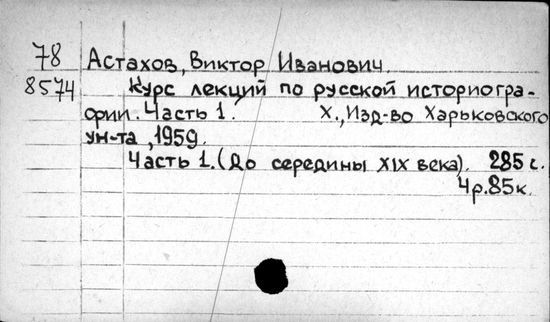 78 Астахов, Виктор Иванович.
8574 Курс лекций по русской историогра-
фии. Часть 1. Х., Изд-во Харьковского
ун-та, 1959.
Часть 1. (До середины XIX века). 285 с.
4р.85к.